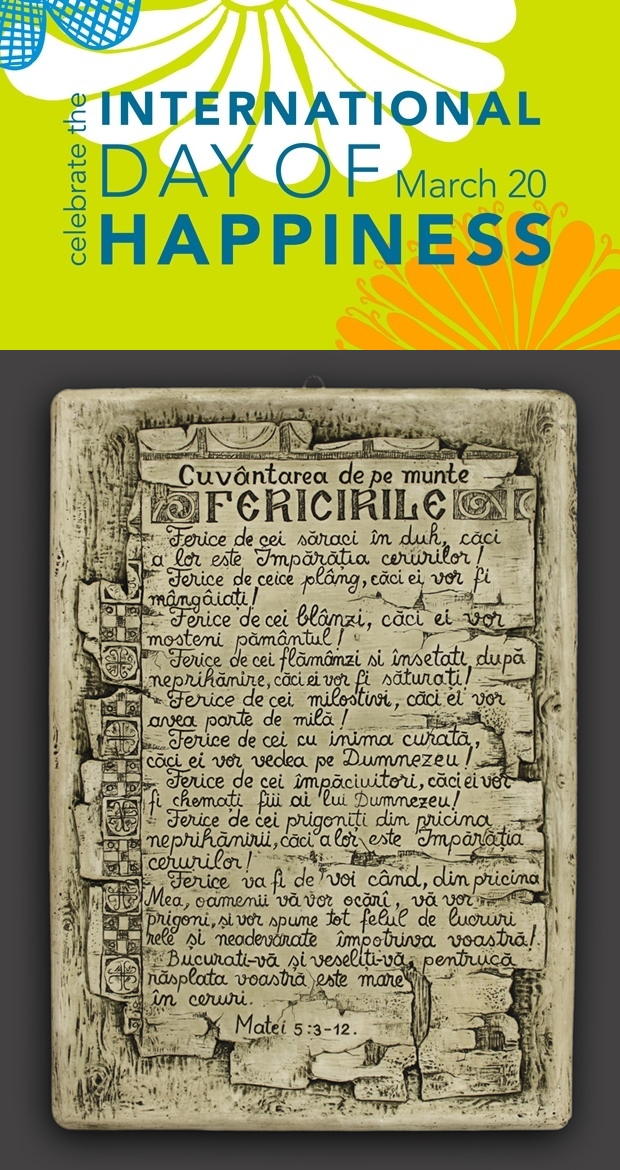 celebrate the
INTERNATIONAL
DAY OF March 20
HAPPINESS
Cuvântarea de pe munte
FERICIRILE
Ferice de cei săraci în duh, căci
a lor este Împărăția cerurilor!
Ferice de ceice plâng, căci ei vor fi
mângâiați!
Ferice de cei blânzi, căci ei vor
mosteni pământul!
Ferice de cei flămânzi si însetati după
neprihănire, căci ei vor fi săturați!
Ferice de cei milostivi, căci ei vor
avea parte de milă!
Ferice de cei cu inima curată,
căci ei vor vedea pe Dumnezeu!
Ferice de cei împăciuitori, căci ei vor
fi chemați fiii ai lui Dumnezeu!
Ferice de cei prigoniți din pricina
neprihănirii, căci a lor este Împărăția
cerurilor!
Ferice va fi de voi când, din pricina
Mea, oamenii vă vor ocărî, vă vor
prigoni, și vor spune tot felul de lucruri
rele și neadevărate împotriva voastră!
Bucurati-vă și veseliți-vă, pentrucă
răsplata voastră este mare
în ceruri.
Matei 5:3-12.